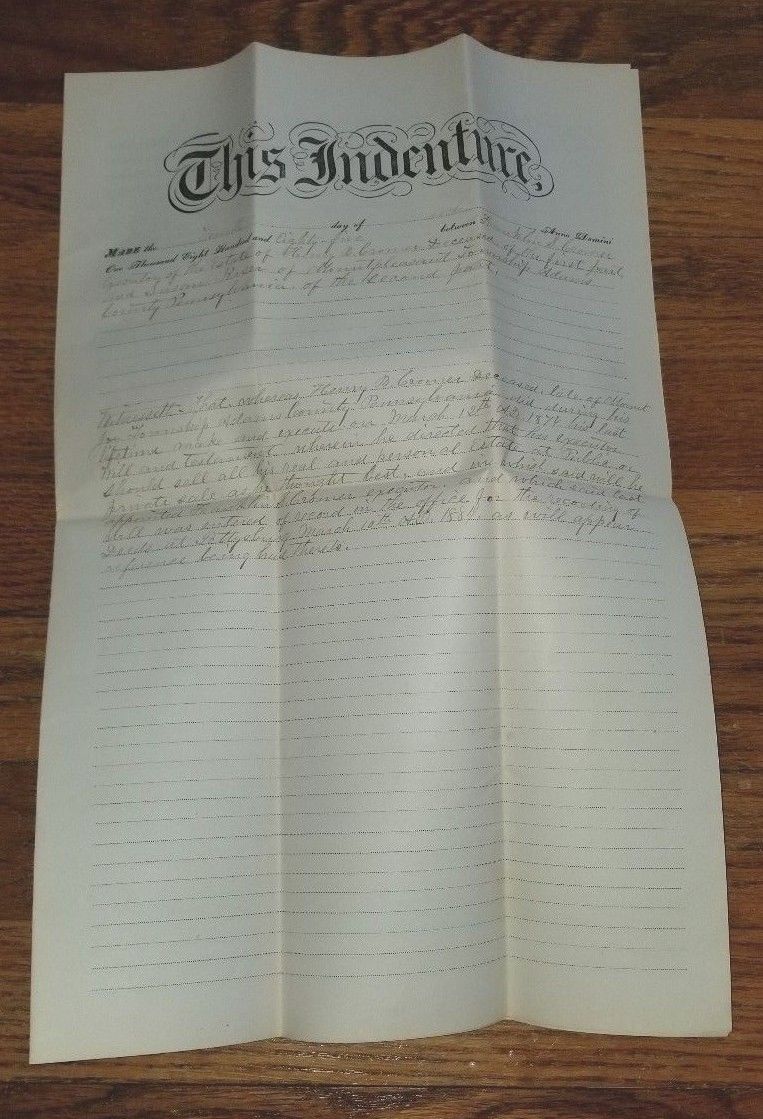 This Indenture,
MADE the day of Anno Domini
One Thousand Eight Hundred and Eighty five between Franklin Cromer
of the estate of Henry Cromer Deceased of the first part
and Susan of Mountpleasant Township Adams
County Pennsylvania, of the Second part,
Witnesseth That whereas Henry Cromer Deceased, late of Mount
Township Adams County Pennsylvania did during his
lifetime make and execute on March 12th AD 187 his last
Will and testament wherein he directed that his executor
should sell all his real and personal estate at Public or
private sale as thought best. and in which said will he
appointed Franklin Cromer executor. and which said last
Will was entered of record in the office for the recording of
Deeds at Gettysburg March 10th AD 188 as will appear
reference being had thereto.